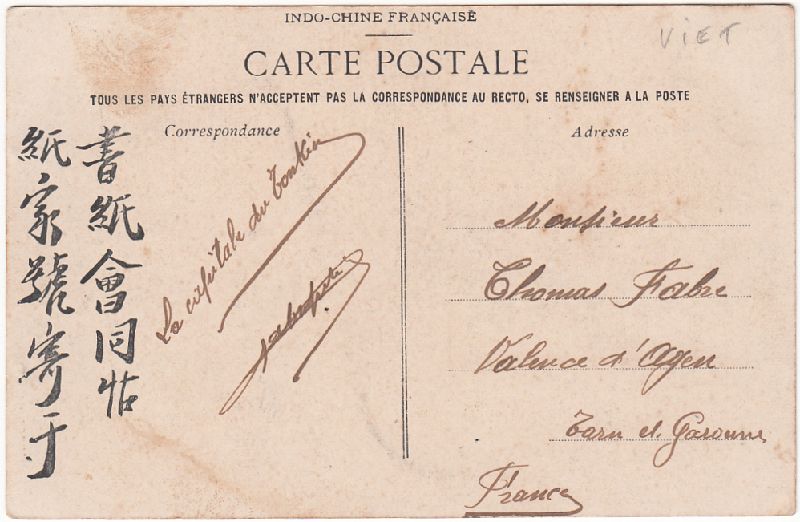 INDO-CHINE FRANÇAISE
VIET
CARTE POSTALE
TOUS LES PAYS ÉTRANGERS N'ACCEPTENT PAS LA CORRESPONDANCE AU RECTO, SE RENSEIGNER A LA POSTE
Correspondance
Adresse
書紙會同帖
紙家號寄于
La capitale du Tonkin
Monsieur
Thomas Fabre
Valence d'Agen
Tarn et Garonne
France